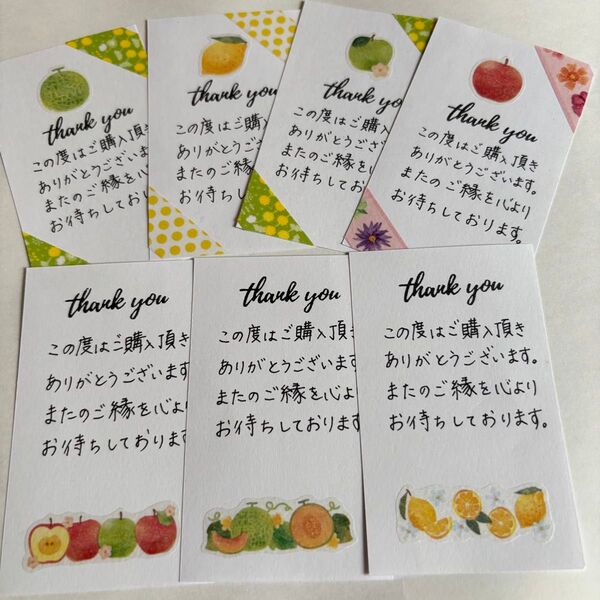 thank you
この度はご購入頂き
ありがとうございます
またのご縁を心より
お待ちしております
thank you
この度はご購入頂き
ありがとうございま
またのご縁を
お待ちして
thank you
この度はご購入
ありがとうござい
またのご縁を
お待ちして
thank you
この度はご購入頂き
ありがとうございます。
またのご縁を心より
お待ちしております。
thank you
この度はご購入頂き
ありがとうございます
またのご縁を心より
お待ちしております
thank you
この度はご購入頂き
ありがとうございます
またのご縁を心より
お待ちしております
thank you
この度はご購入頂き
ありがとうございます。
またのご縁を心より
お待ちしております。